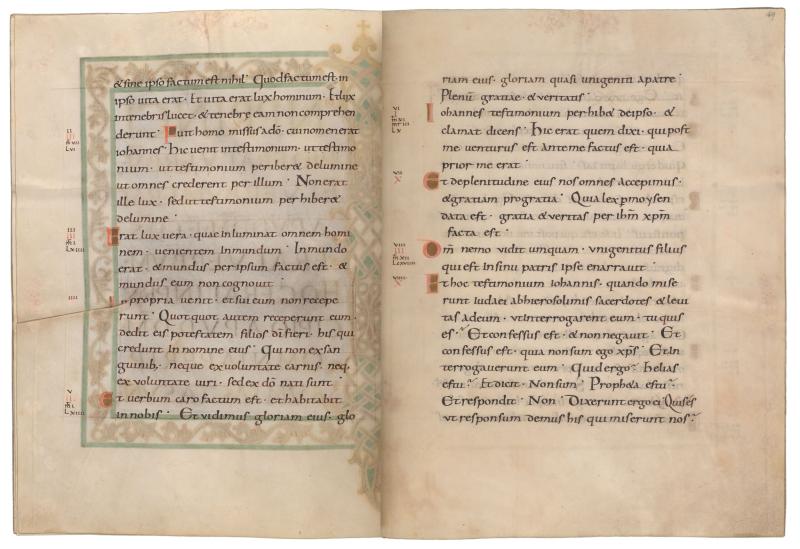 & sine ipso factum est nihil · Quod factum est in
ipso uita erat · Et uita erat lux hominum · Et lux
in tenebris lucet · & tenebre eam non comprehen
derunt ·
Fuit homo missus a dō · cui nomen erat
iohannes · Hic uenit in testimonium · ut testimo
nium · ut testimonium periber& de lumine
ut omnes crederent per illum · Non erat
ille lux · sed ut testimonium per hiber&
de lumine ·
Erat lux uera · quae inluminat omnem homi
nem · uenientem in mundum · In mundo
erat · & mundus per ipsum factus est · &
mundus eum non cognouit ·
In propria uenit · et sui eum non recepe
runt · Quot quot autem receperunt eum ·
dedit eis potestatem filios dī fieri · his qui
credunt in nomine eius · Qui non ex san
guinib; · neque ex uoluntate carnis · neq;
ex uoluntate uiri · sed ex dō nati sunt ·
Et uerbum caro factum est · et habitabit
in nobis · Et uidimus gloriam eius · glo
49
riam eius · gloriam quasi unigeniti a patre ·
Plenū gratiae · & ueritatis ·
Iohannes testimonium per hib& de ipso · &
clamat dicens · Hic erat quem dixi · qui post
me uenturus est ante me factus est · quia
prior me erat ·
Et de plenitudine eius nos omnes accepimus ·
& gratiam pro gratia · Quia lex p moysen
data est · gratia & ueritas per ihm̄ xpm̄
facta est ·
Dm̄ nemo uidit umquam · Vnigenitus filius
qui est in sinu patris ipse enarrauit ·
Et hoc testimonium iohannis · quando mise
runt iudaei ab hierosolimis sacerdotes & leui
tas ad eum · ut interrogarent eum · tu quis
es · Et confessus est · & non negauit · Et
confessus est · quia non sum ego xps̄ · Et in
terrogauerunt eum · Quid ergo · helias
es tu · Et dicit · Non sum · Proph&a es tu ·
Et respondit · Non · Dixerunt ergo ei · Quis es
ut responsum demus his qui miserunt nos ·